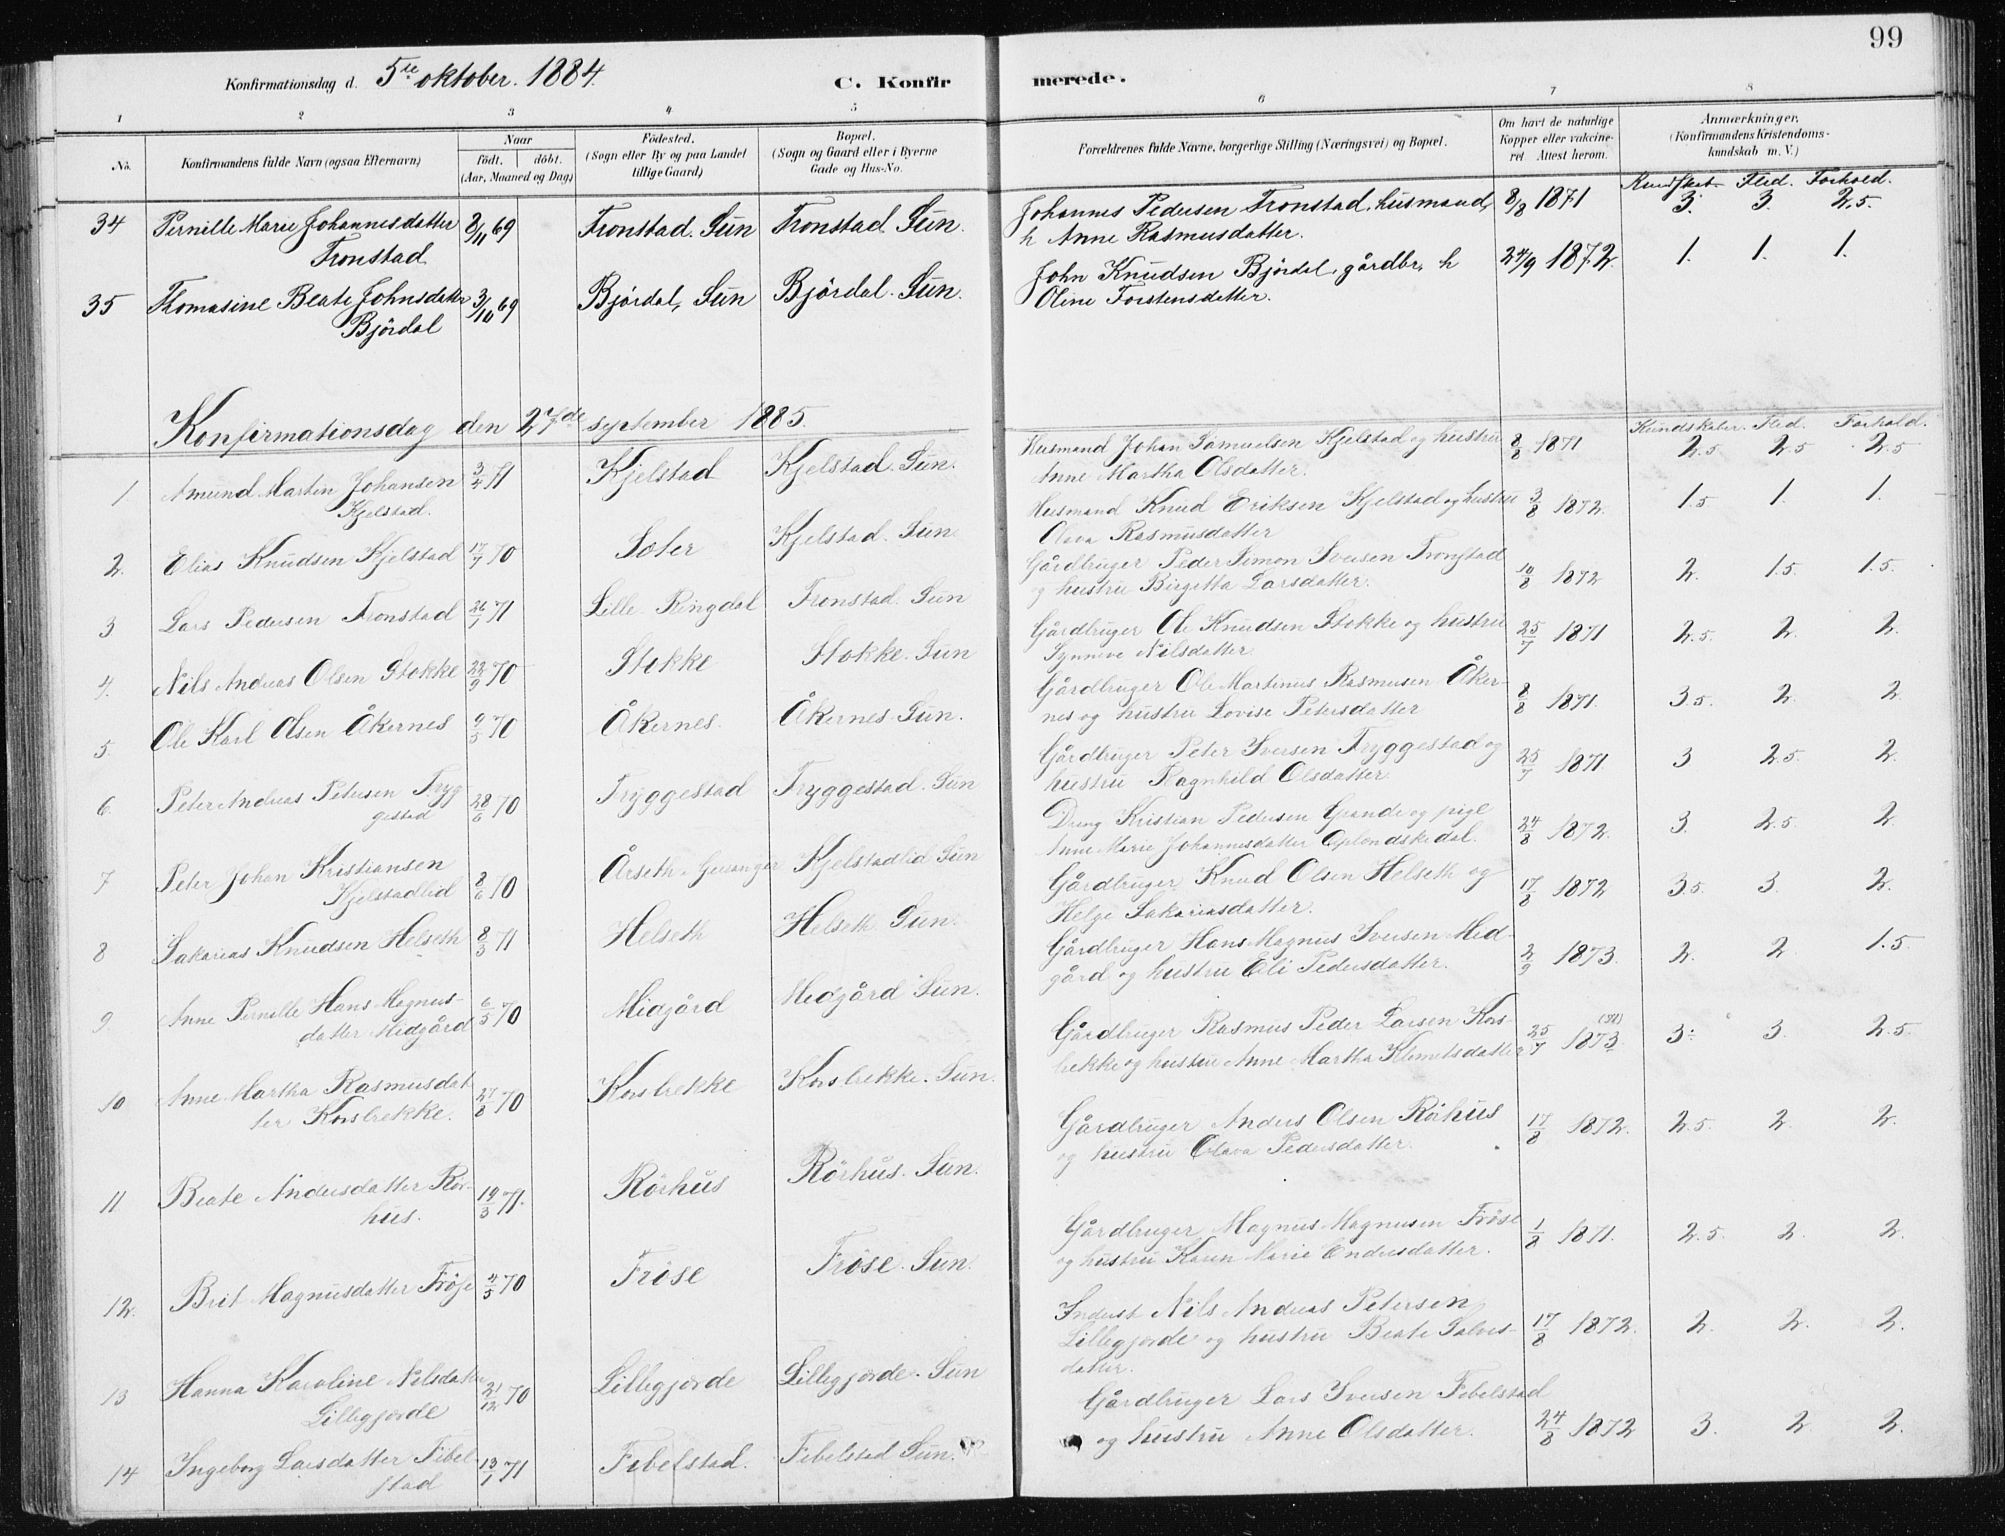 99
Konfirmationsdag d. 5te oktober. 1884.
C. Konfirmerede.
1 2 3 4 5 6 7 8
No.
Konfirmandens fulde Navn (ogsaa Efternavn)
Naar
födt. döbt.
(Aar, Maaned og Dag)
Födested.
(Sogn eller By og paa Landet
tillige Gaard)
Bopæl.
(Sogn og Gaard eller i Byerne
Gade og Hus-No.
Forældrenes fulde Navne, borgerlige Stilling (Næringsvei) og Bopæl.
Om havt de naturlige
Kopper eller vakcine-
ret Attest herom.
Anmærkninger.
(Konfirmandens Kristendoms-
kundskab m. V.)
Kundskab. Flid. Forhold.
34 Pernille Marie Johannesdatter 8/11 69 Tronstad. Sun Tronstad Sun. Johannes Pedersen Tronstad, husmand, 8/8 1871 3. 3. 2.5.
Tronstad h Anne Rasmusdatter.
35 Thomasine Beate Johnsdatter 3/10 69 Björdal, Sun Björdal. Sun. John Knudsen Björdal, gårdbr, h 24/9 1872. 1. 1. 1.
Björdal Oline Torstensdatter.
Konfirmationsdag den 27de september 1885.
Kundskaber. Flid. Forhold.
1 Amund Martin Johansen 3/4 71 Kjelstad Kjelstad. Sun. Husmand Johan Samuelsen Kjelstad og hustru 8/8 1871 2.5 2.5 2.5
Kjelstad. Anne Martha Olsdatter.
2. Elias Knudsen Kjelstad 17/7 70 Soter Kjelstad. Sun. Husmand Knud Eriksen Kjelstad og hustru 3/8 1872. 1.5 1. 1.
Olava Rasmusdatter
3 Lars Pedersen Tronstad 26/1 71 Lille Ringdal Tronstad. Sun Gårdbruger Peder Simon Iversen Tronstad 10/8 1872 2. 1.5. 1.5.
og hustru Birgitta Larsdatter.
4. Nils Andreas Olsen Stokke 22/9 70 Stokke Stokke. Sun Gårdbruger Ole Knudsen Stokke og hustru 25/7 1871 2.5. 2. 2.
Synneve Nilsdatter
5. Ole Karl Olsen Åkernes 9/5 70 Åkernes. Åkernes. Sun. Gårdbruger Ole Martinus Rasmusen Åker- 8/8 1871. 3.5. 2. 2.
nes og hustru Lovise Petersdatter
6. Peter Andreas Petersen Tryg 28/6 70 Tryggestad Tryggestad. Sun Gårdbruger Peter Iversen Tryggestad og 25/7 1871. 3 2.5. 2.
gestad hustru Ragnhild Olsdatter.
7 Peter Johan Kristiansen 8/6 70 Årseth. Geiranger Kjelstadlid Sun Dreng Kristian Pedersen Grande og pige 24/8 1872. 3. 2.5. 2.
Kjelstadlid Anne Marie Johannesdatter Oplendskedal.
8 Sakarias Knudsen Helseth 8/3 71 Helseth Helseth. Sun. Gårdbruger Knud Olsen Helseth og 17/8 1872 3.5. 3. 2.
Helge Sakariasdatter.
9. Anne Pernille Hans Magnus- 6/5 70 Midgård Midgård Sun. Gårdbruger Hans Magnus Iversen Mid- 2/9 1873. 2. 2. 1.5.
datter Midgård gård og hustru Eli Pedersdatter.
10 Anne Martha Rasmusdat 27/8 70 Korsbrekke Korsbrekke. Sun. Gårdbruger Rasmus Peder Larsen Kors- 25/7 1873. 3. 3. 2.5.
ter Korsbrekke. brekke og hustru Anne Martha Klemetsdatter
11 Beate Andersdatter Rör- 19/3 71. Rörhus Rörhus. Sun. Gårdbruger Anders Olsen Rörhus 17/8 1872. 2.5. 2. 2.
hus. og hustru Olava Pedersdatter.
12. Brit Magnusdatter Fröse 4/5 70 Fröse Fröse. Sun. Gårdbruger Magnus Magnusen Fröse 1/8 1871. 2.5. 2. 2.
og hustru Karen Marie Endersdatter.
13 Hanna Karoline Nilsdatter 21/12 70 Lillegjerde Lillegjerde. Sun Inderst Nils Andreas Petersen 17/8 1872. 2. 2. 2.
Lillegjerde Lillegjerde og hustru Beate Salves-
datter.
14 Ingeborg Larsdatter Fibel 13/1 71 Fibelstad. Fibelstad Sun. Gårdbruger Lars Iversen Fibelstad 24/8 1872 3. 2. 2.
stad og hustru Anne Olsdatter.